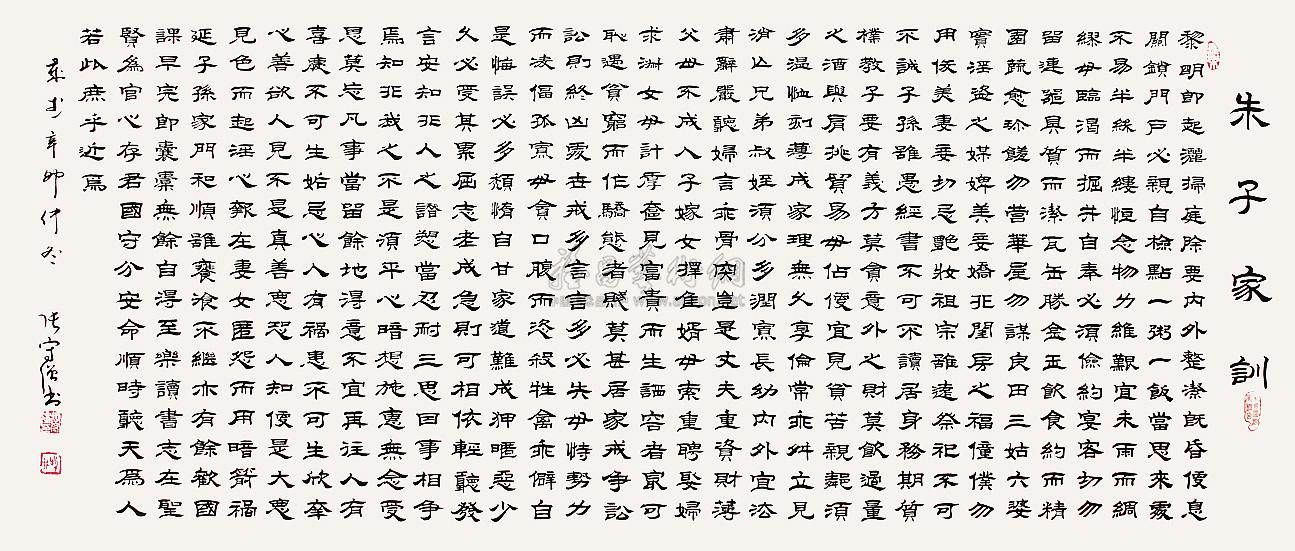 朱子家訓
黎明即起灑掃庭除要內外整潔既昏便息
關鎖門戶必親自檢點一粥一飯當思來處
不易半絲半縷恒念物力維艱宜未雨而綢
繆毋臨渴而掘井自奉必須儉約宴客切勿
留連器具質而潔瓦缶勝金玉飲食約而精
園蔬愈珍饈勿營華屋勿謀良田三姑六婆
實淫盜之媒婢美妾嬌非閨房之福僮僕勿
用俊美妻妾切忌艷妝祖宗雖遠祭祀不可
不誠子孫雖愚經書不可不讀居身務期質
樸教子要有義方莫貪意外之財莫飲過量
之酒與肩挑貿易毋佔便宜見貧苦親鄰須
多溫恤刻薄成家理無久享倫常乖舛立見
消亡兄弟叔姪須分多潤寡長幼內外宜法
肅辭嚴聽婦言乖骨肉豈是丈夫重資財薄
父母不成人子嫁女擇佳婿毋索重聘娶婦
求淑女毋計厚奩見富貴而生諂容者最可
恥遇貧窮而作驕態者賤莫甚居家戒爭訟
訟則終凶處世戒多言言多必失毋恃勢力
而凌偪孤寡毋貪口腹而恣殺牲禽乖僻自
是悔誤必多頹惰自甘家道難成狎暱惡少
久必受其累屈志老成急則可相依輕聽發
言安知非人之譖愬當忍耐三思因事相爭
焉知非我之不是須平心暗想施惠無念受
恩莫忘凡事當留餘地得意不宜再往人有
喜慶不可生妬忌心人有禍患不可生欣幸
心善欲人見不是真善惡恐人知便是大惡
見色而起淫心報在妻女匿怨而用暗箭禍
延子孫家門和順雖饔飧不繼亦有餘歡國
課早完即囊橐無餘自得至樂讀書志在聖
賢為官心存君國守分安命順時聽天為人
若此庶乎近焉
歲在辛卯仲冬 張守書